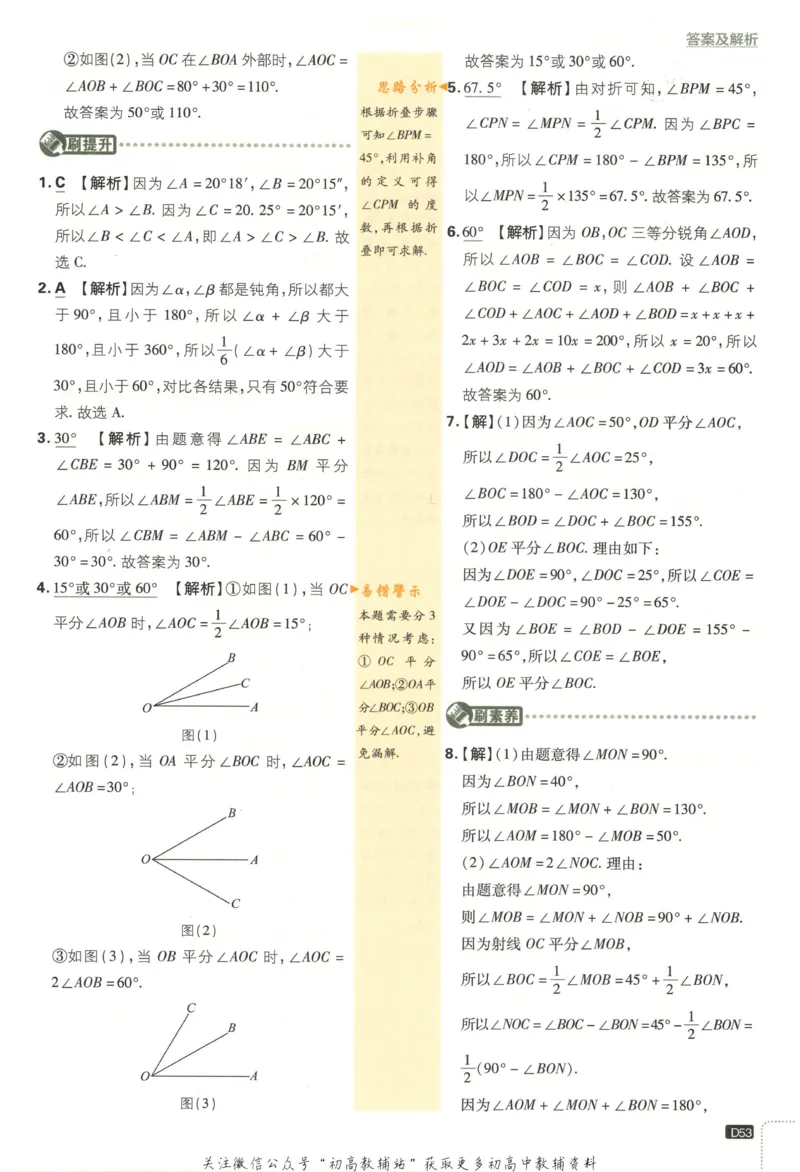 答案及解析
②如图(2),当 OC 在∠BOA 外部时,∠AOC=
∠AOB+∠BOC=80°+30°=110°.
故答案为 50°或 110°.
刷提升
1. C 【解析】因为∠A=20°18′,∠B=20°15″,
所以∠A>∠B. 因为∠C=20.25°=20°15′,
所以∠B<∠C<∠A,即∠A>∠C>∠B. 故
选 C.
2. A 【解析】因为∠α,∠β 都是钝角,所以都大
于 90°,且小于 180°,所以 ∠α+∠β 大于
180°,且小于 360°,所以 1/6(∠α+∠β)大于
30°,且小于 60°,对比各结果,只有 50°符合要
求. 故选 A.
3. 30° 【解析】由题意得 ∠ABE=∠ABC+
∠CBE=30°+90°=120°. 因为 BM 平分
∠ABE,所以∠ABM=1/2∠ABE=1/2×120°=
60°,所以∠CBM=∠ABM-∠ABC=60°-
30°=30°. 故答案为 30°.
4. 15°或 30°或 60° 【解析】①如图(1),当 OC
平分∠AOB 时,∠AOC=1/2∠AOB=15°;
B
C
O
A
图(1)
②如图(2),当 OA 平分∠BOC 时,∠AOC=
∠AOB=30°;
B
O
A
C
图(2)
③如图(3),当 OB 平分∠AOC 时,∠AOC=
2∠AOB=60°.
C
B
O
A
图(3)
思路分析
根据折叠步骤
可知∠BPM=
45°,利用补角
的定义可得
∠CPM 的度
数,再根据折
叠即可求解.
易错警示
本题需要分 3
种情况考虑:
① OC 平分
∠AOB;②OA平
分∠BOC;③OB
平分∠AOC,避
免漏解.
故答案为 15°或 30°或 60°.
5. 67.5° 【解析】由对折可知,∠BPM=45°,
∠CPN=∠MPN=1/2∠CPM. 因为∠BPC=
180°,所以∠CPM=180°-∠BPM=135°,所
以∠MPN=1/2×135°=67.5°. 故答案为 67.5°.
6. 60° 【解析】因为 OB,OC 三等分锐角∠AOD,
所以∠AOB=∠BOC=∠COD. 设∠AOB=
∠BOC=∠COD=x,则∠AOB+∠BOC+
∠COD+∠AOC+∠AOD+∠BOD=x+x+x+
2x+3x+2x=10x=200°,所以 x=20°,所以
∠AOD=∠AOB+∠BOC+∠COD=3x=60°.
故答案为 60°.
7.【解】(1)因为∠AOC=50°,OD 平分∠AOC,
所以∠DOC=1/2∠AOC=25°,
∠BOC=180°-∠AOC=130°,
所以∠BOD=∠DOC+∠BOC=155°.
(2)OE 平分∠BOC. 理由如下:
因为∠DOE=90°,∠DOC=25°,所以∠COE=
∠DOE-∠DOC=90°-25°=65°.
又因为∠BOE=∠BOD-∠DOE=155°-
90°=65°,所以∠COE=∠BOE,
所以 OE 平分∠BOC.
刷素养
8.【解】(1)由题意得∠MON=90°.
因为∠BON=40°,
所以∠MOB=∠MON+∠BON=130°.
所以∠AOM=180°-∠MOB=50°.
(2)∠AOM=2∠NOC. 理由:
由题意得∠MON=90°,
则∠MOB=∠MON+∠NOB=90°+∠NOB.
因为射线 OC 平分∠MOB,
所以∠BOC=1/2∠MOB=45°+1/2∠BON,
所以∠NOC=∠BOC-∠BON=45°-1/2∠BON=
1/2(90°-∠BON).
因为∠AOM+∠MON+∠BON=180°,
D53
关注微信公众号“初高教辅站”获取更多初高中教辅资料